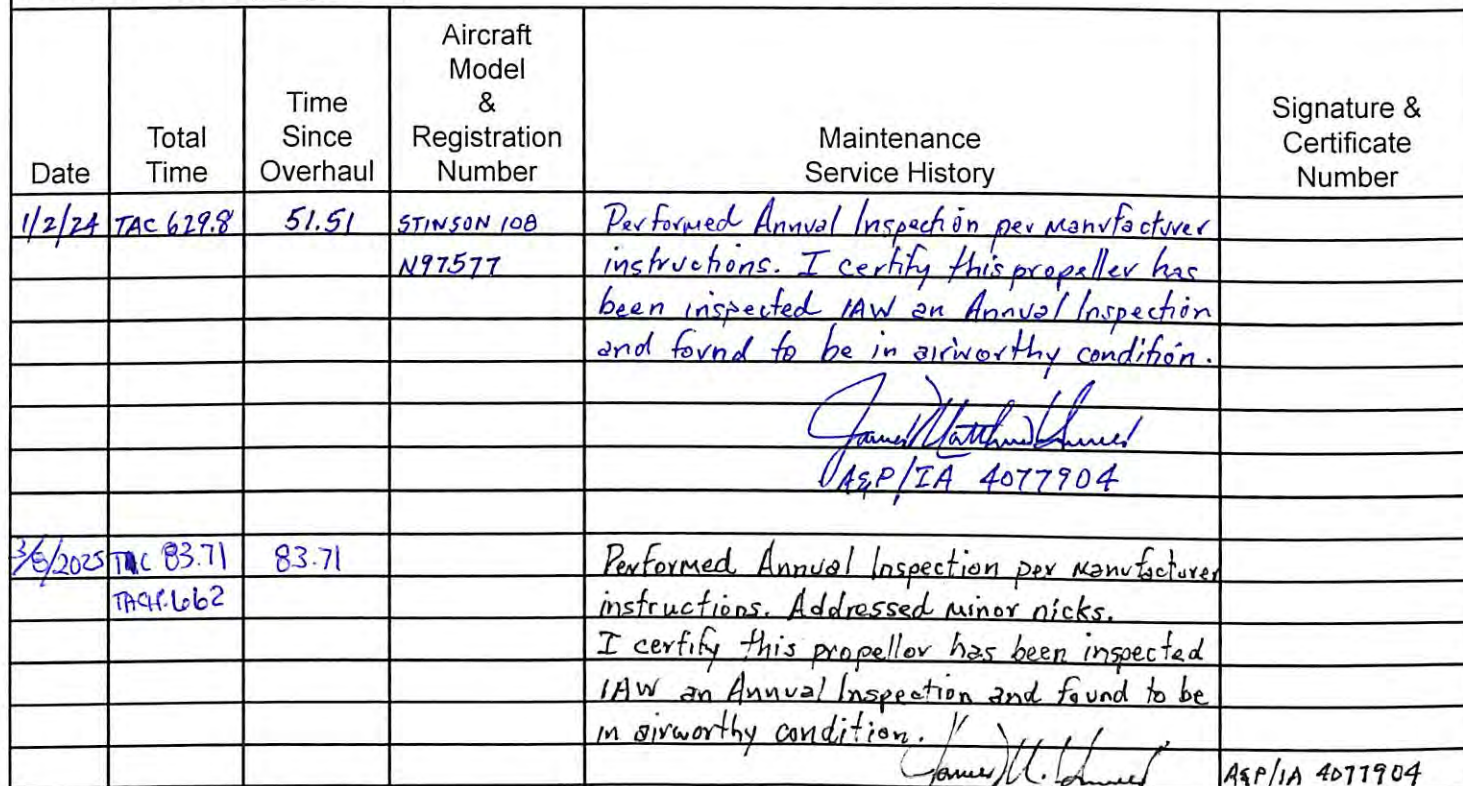 Date
Total
Time
Time
Since
Overhaul
Aircraft
Model
&
Registration
Number
Maintenance
Service History
Signature &
Certificate
Number
1/2/24 TAC 629.8 51.51 STINSON 108 Performed Annual Inspection per Manufacturer
N97577 instructions. I certify this propeller has
been inspected IAW an Annual Inspection
and found to be in airworthy condition.
James Matthew
A&P/IA 4077904
2025 TAC 83.71 83.71 Performed Annual Inspection per Manufacturer
TACH. 662 instructions. Addressed minor nicks.
I certify this propellor has been inspected
IAW an Annual Inspection and found to be
in airworthy condition.
James M. A&P/IA 4077904